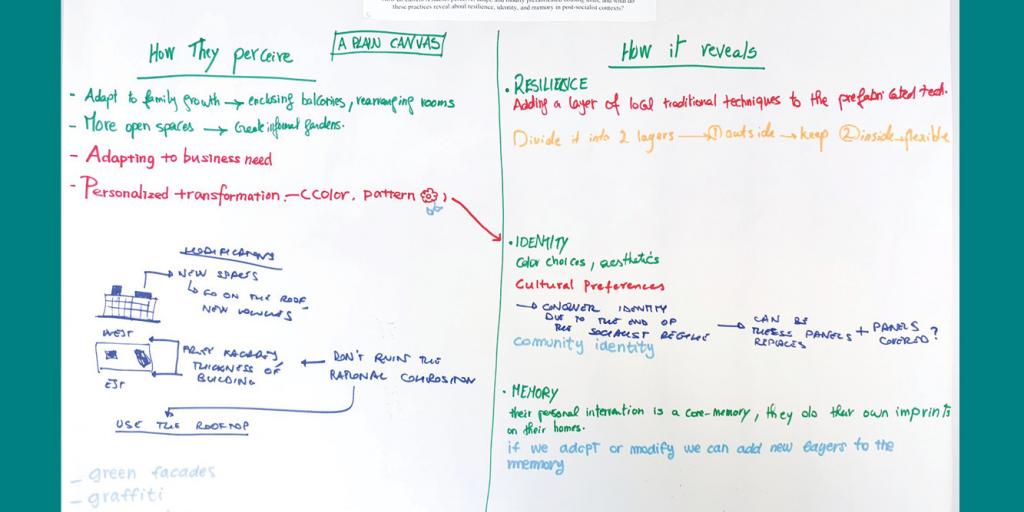 these practices reveal about resilience, identity, and memory in post-socialist contexts?
How They perceive
A PLAIN CANVAS
- Adapt to family growth → enclosing balconies, rearranging rooms
- More open spaces → Create informal gardens.
- Adapting to business need
- Personalized transformation. - (Color, pattern )
MODIFICATIONS
→ NEW SPACES
↳ GO ON THE ROOF
NEW VOLUMES
WEST
EST
THICKNESS OF
BUILDING
← DON'T RUIN THE
RATIONAL COMPOSITION
USE THE ROOFTOP
- green facades
- graffiti
How it reveals
• RESILIENCE
Adding a layer of local traditional techniques to the prefabricated tech.
Divide it into 2 layers → ① outside → keep ② inside → flexible
• IDENTITY
Color choices, aesthetics
Cultural Preferences
→ CONQUER IDENTITY
DUE TO THE END OF
THE SOCIALIST REGIME
→ CAN BE
THESE PANELS
REPLACED
+ PANELS
COVERED?
comunity identity
• MEMORY
their personal interration is a core-memory, they do their own imprints
on their homes.
if we adopt or modify we can add new layers to the
memory